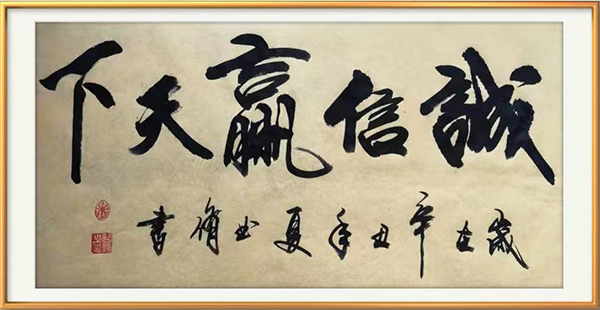 誠信贏天下
歲在辛丑年夏書